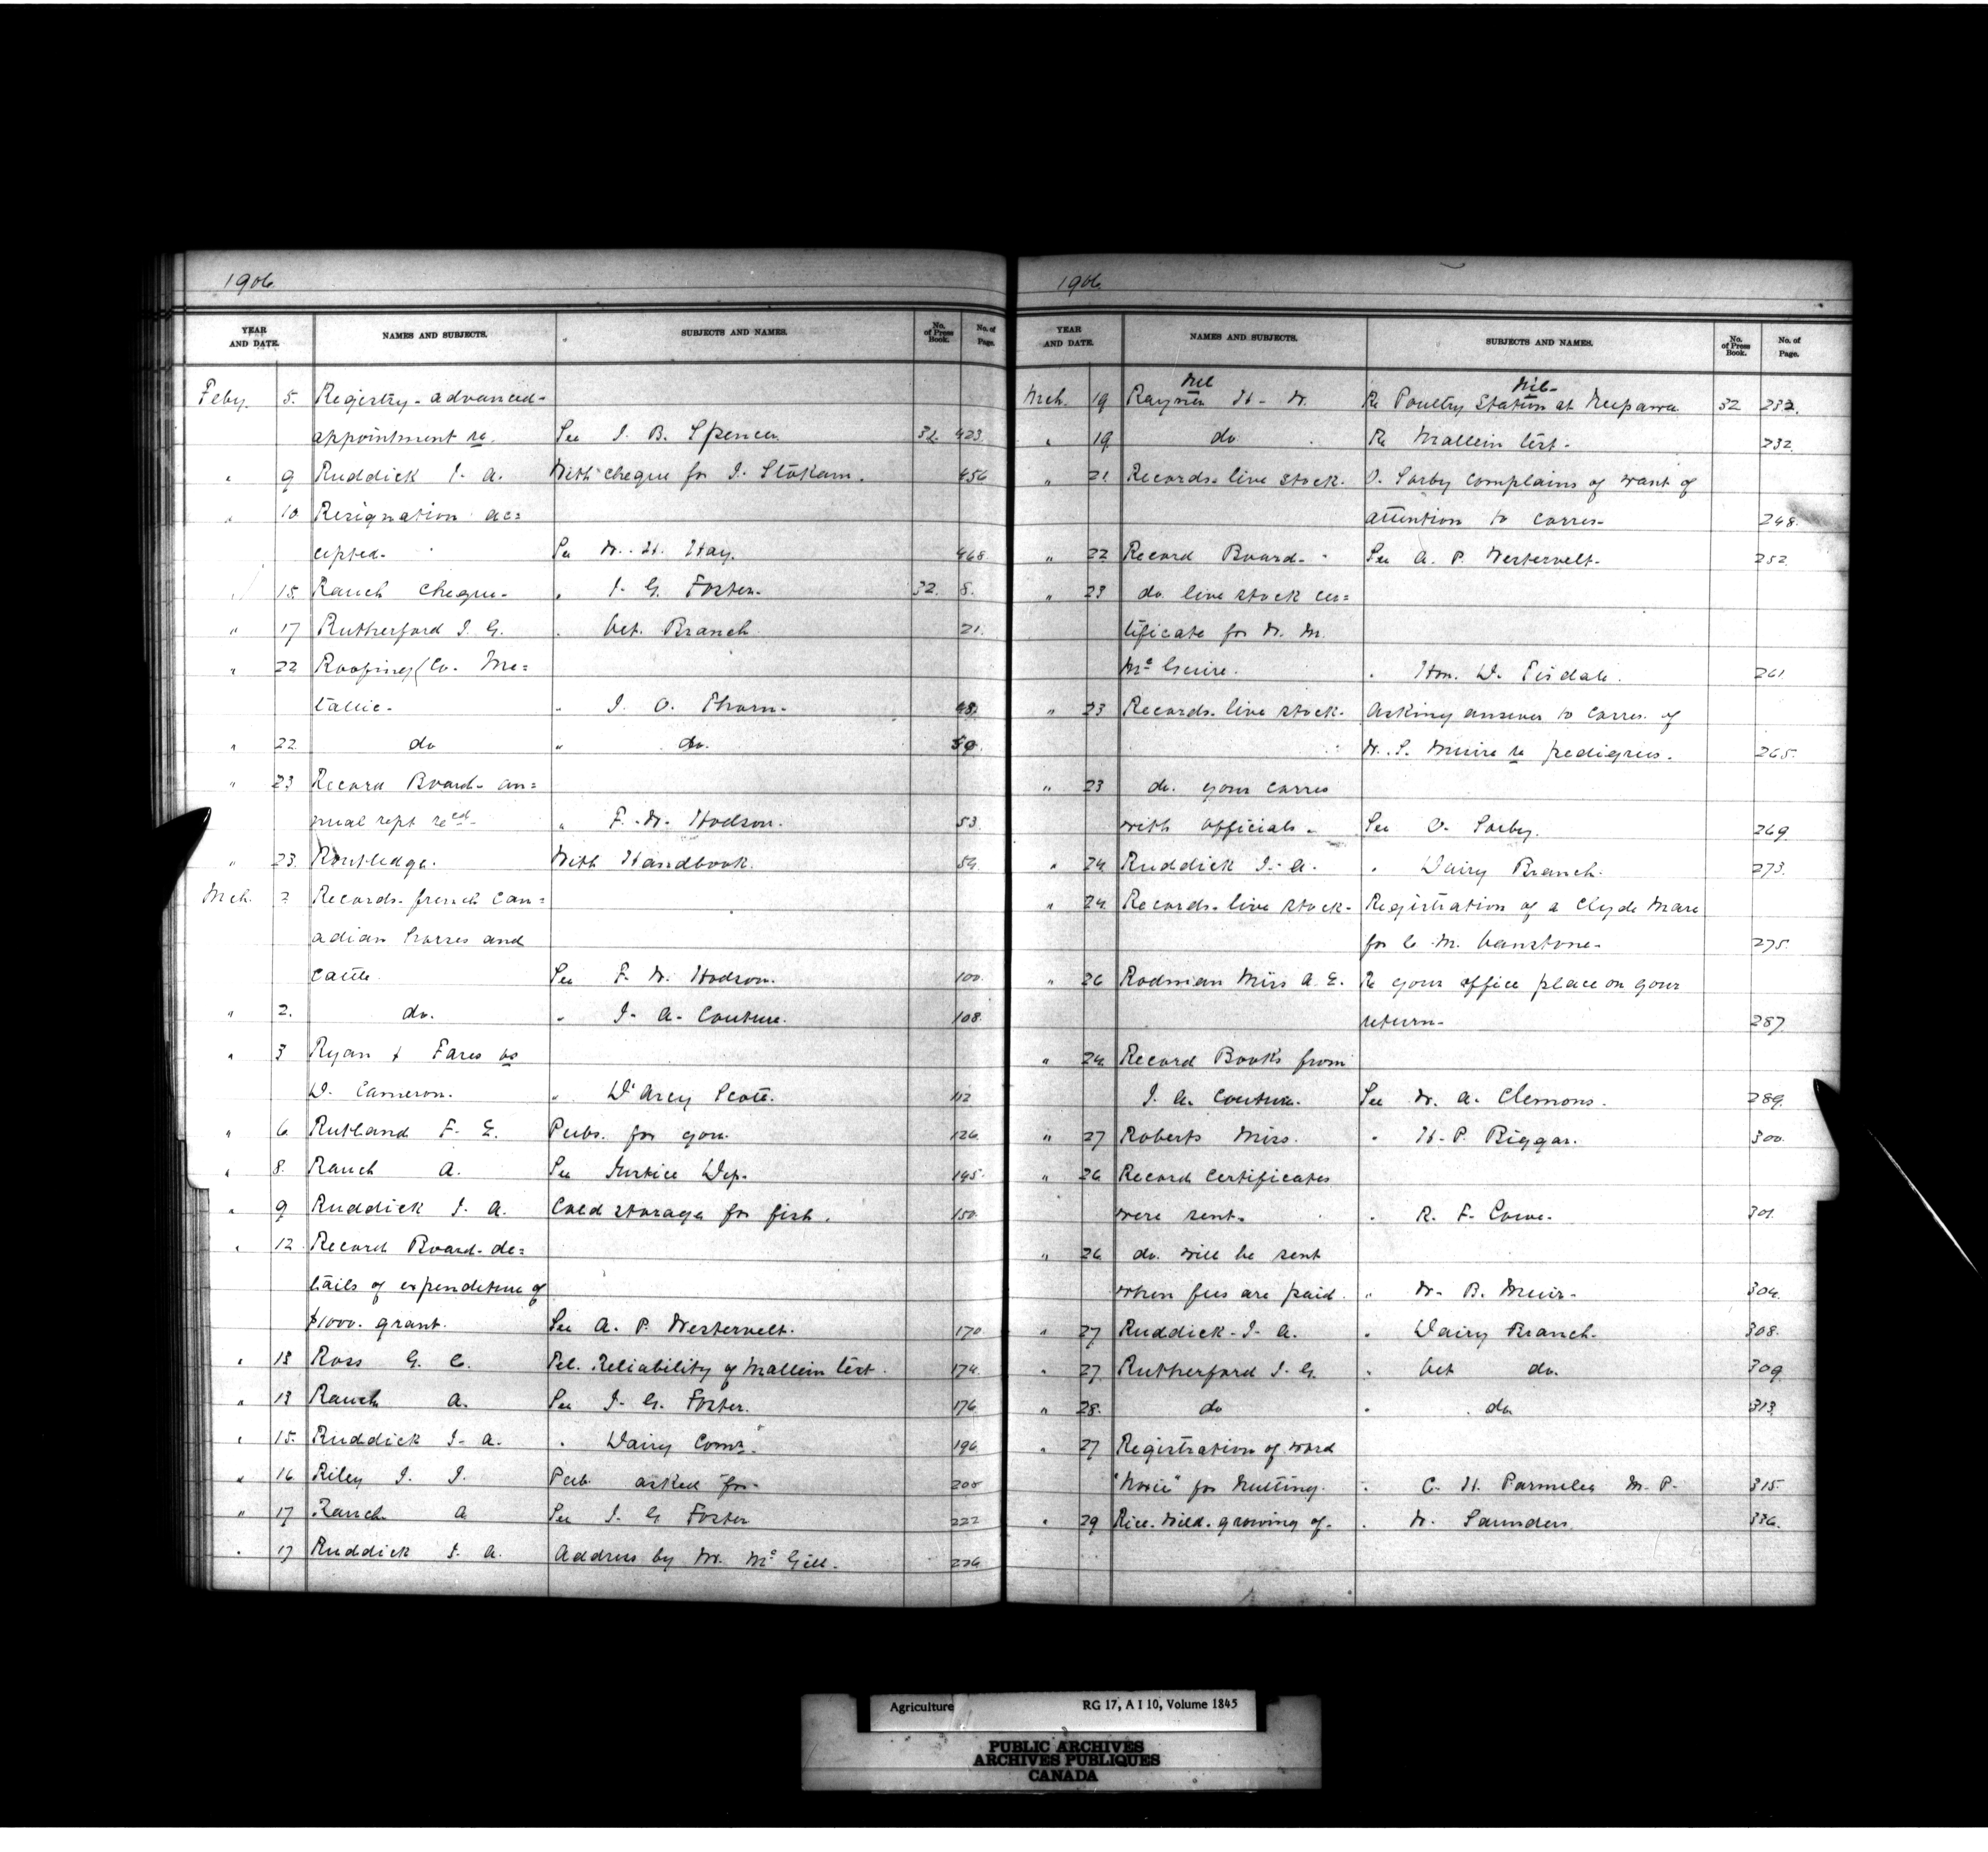 1906
YEAR AND DATE. NAMES AND SUBJECTS. SUBJECTS AND NAMES. No. of Press Book. No. of Page.
Feby. 5. Registry - advanced -
appointment re. See J. B. Spencer. 32. 423.
" 9 Ruddick J. A. With cheque for J. Stokam. 456
" 10 Resignation ac=
cepted- See W. H. Hay. 468
" 15. Ranch cheque- " J. G. Foster. 32. 8.
" 17 Rutherford J. G. " Vet. Branch. 21.
" 22 Roofing Co. Me=
tallic- " J. O. Thorn- 48.
" 22 do " do. 50.
" 23 Record Board- an=
nual rept recd- " F. W. Hodson. 53.
" 23. Routledge. With Handbook. 54.
Mch. 2 Records- french Can=
adian horses and
cattle. See F. W. Hodson. 100.
" 2. do. " J. A. Couture. 108.
" 3 Ryan & Fares vs
D. Cameron. " D'Arcy Scott. 112
" 6 Rutland F. E. Pubs. for you. 126.
" 8. Rauch A. See Justice Dep. 145.
" 9 Ruddick J. A. Cold storage for fish. 150.
" 12 Record Board- de=
tails of expenditure of
$1000. grant. See A. P. Westervelt. 170.
" 13 Ross G. C. Rel. Reliability of Mallein test. 174.
" 13 Rauch A. See J. G. Foster. 176
" 15. Ruddick J. A. " Dairy Comr. 196
" 16 Riley J. J. Pub. asked for- 205
" 17 Rauch A See J. G Foster 222
" 17 Ruddick J. A. Address by Mr. Mc Gill. 226
1906
YEAR AND DATE. NAMES AND SUBJECTS. SUBJECTS AND NAMES. No. of Press Book. No. of Page.
Mch. 19 H. W. Re Poultry Station at Neepawa 32 232.
" 19 do Re Mallein test- 232
" 21 Records- live stock. O. Sorby complains of want of
attention to corres- 248.
" 22 Record Board- See A. P. Westervelt- 252
" 23 do. live stock cer=
tificate for W. M.
Mc Guire. " Hon. D. Tisdale. 261
" 23 Records- live stock- Asking answer to corres. of
W. S. Muire re pedigrees. 265.
" 23 do. your corres
with officials- See O. Sorby. 269
" 24 Ruddick J. A. " Dairy Branch. 273.
" 24 Records- live stock- Registration of a Clyde Mare
for C. M. Vanstone- 275.
" 26 Rodman Miss A. E. Re your office place on your
return- 287
" 24 Record Books from
J. A. Couture. See W. A. Clemons. 289.
" 27 Roberts Miss. " H. P. Biggar. 300.
" 26 Record Certificates
were sent- " R. F. Cowe- 301
" 26 do. will be sent
when fees are paid. " W. B. Muir- 304.
" 27 Ruddick- J. A. " Dairy Branch- 308.
" 27 Rutherford J. G. " Vet do. 309
" 28. do " do 313
" 27 Registration of word
for Nutting. " C. H. Parmelee M. P. 315.
" 29 Rice- Wild- growing of- " W. Saunders. 336.
Agriculture RG 17, A I 10, Volume 1845
PUBLIC ARCHIVES
ARCHIVES PUBLIQUES
CANADA